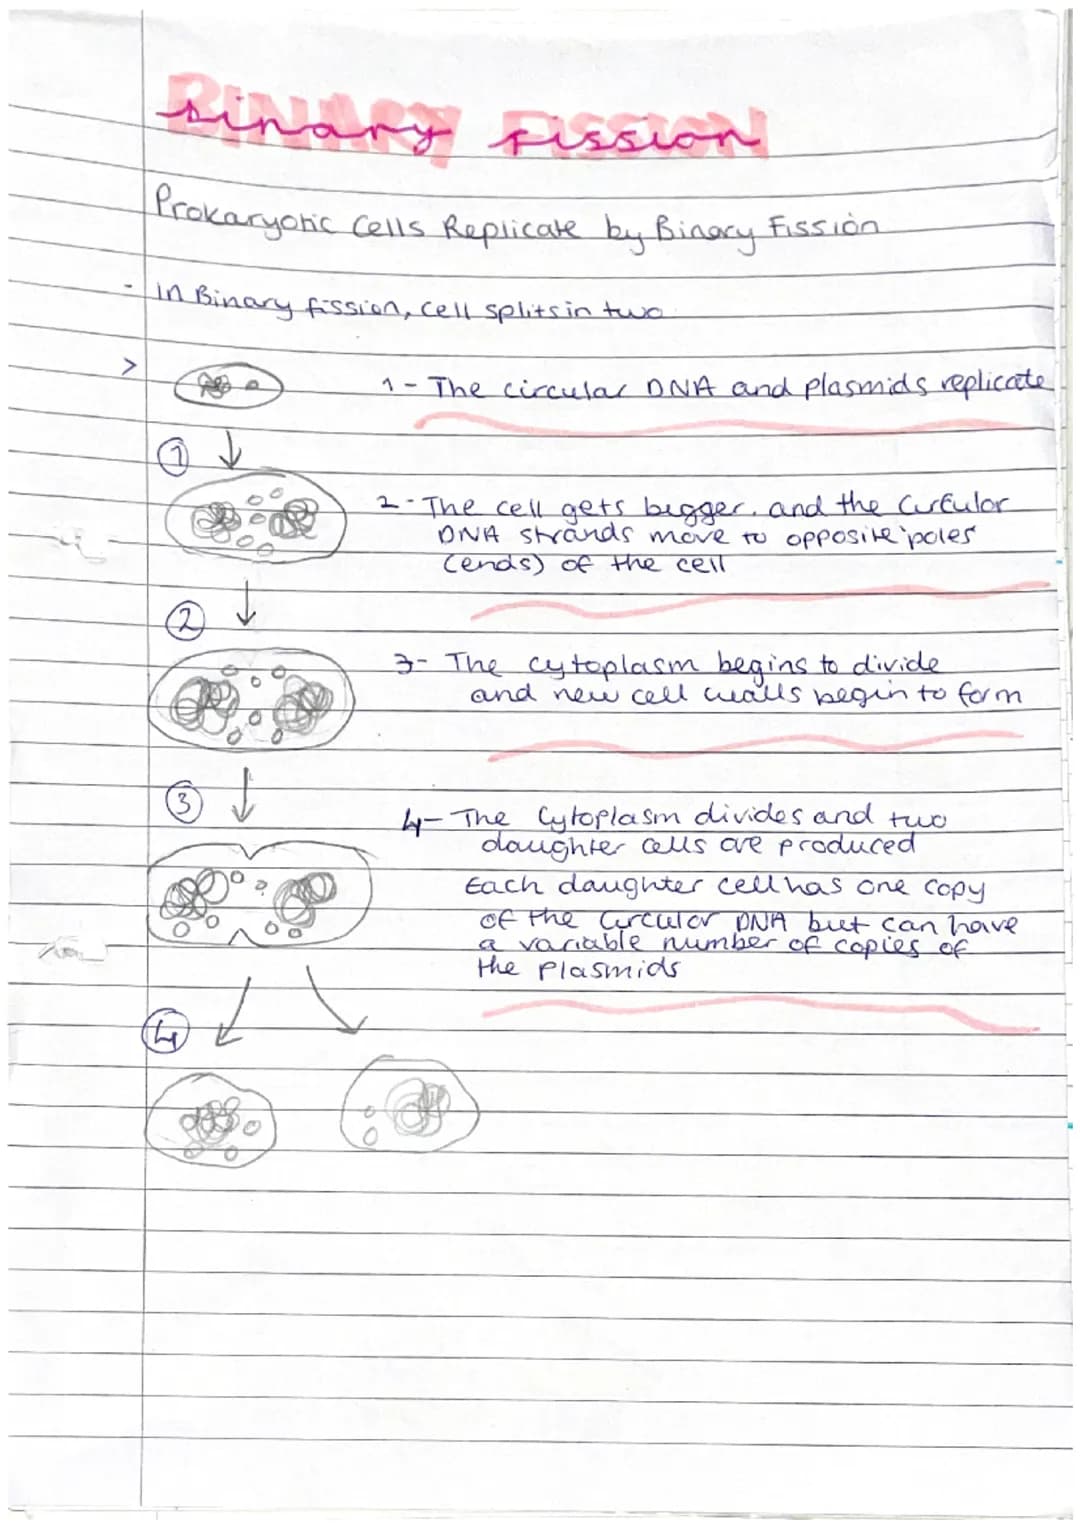 BINARY FISSION
Binary Fission
Prokaryotic Cells Replicate by Binary Fission
- In Binary fission, cell splits in two
>
1 - The circular DNA and plasmids replicate
①
2 - The cell gets bigger. and the circular
DNA strands move to opposite 'poles
(ends) of the cell
②
3 - The cytoplasm begins to divide
and new cell walls begin to form
③
4 - The Cytoplasm divides and two
daughter cells are produced
Each daughter cell has one copy
of the circular DNA but can have
a variable number of copies of
the plasmids
④